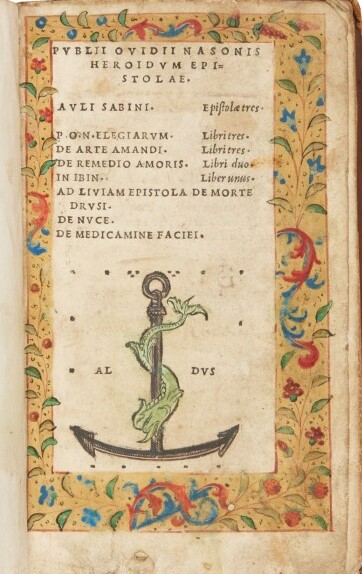 PVBLII OVIDII NASONIS
HEROIDVM EPI=
STOLAE.
AVLI SABINI. Epistolæ tres.
P.O.N. ELEGIARVM. Libri tres.
DE ARTE AMANDI. Libri tres.
DE REMEDIO AMORIS. Libri duo.
IN IBIN. Liber unus.
AD LIVIAM EPISTOLA DE MORTE
DRVSI.
DE NVCE.
DE MEDICAMINE FACIEI.
AL DVS